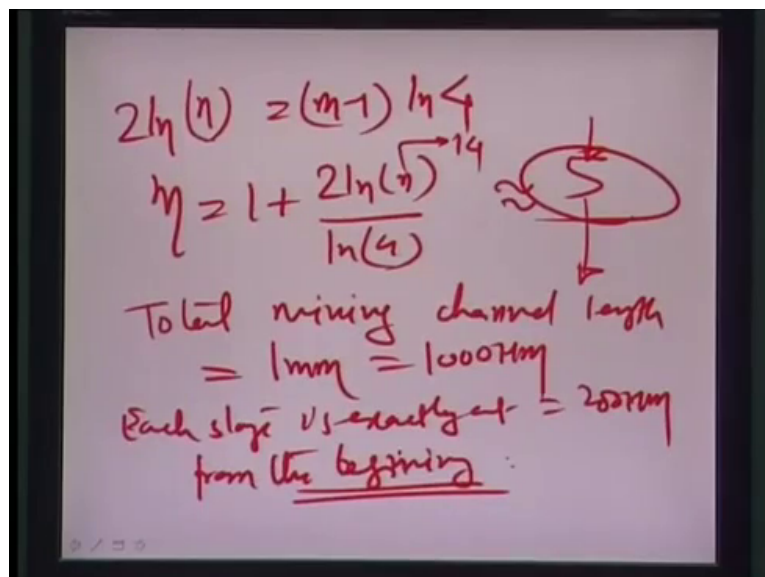 2ln(n) = (m-1) ln 4
m = 1 + 2ln(n) / ln(4) ≈ 5
→ 14
Total mixing channel length
= 1mm = 1000μm
Each stage is exactly at = 200μm
from the begining.